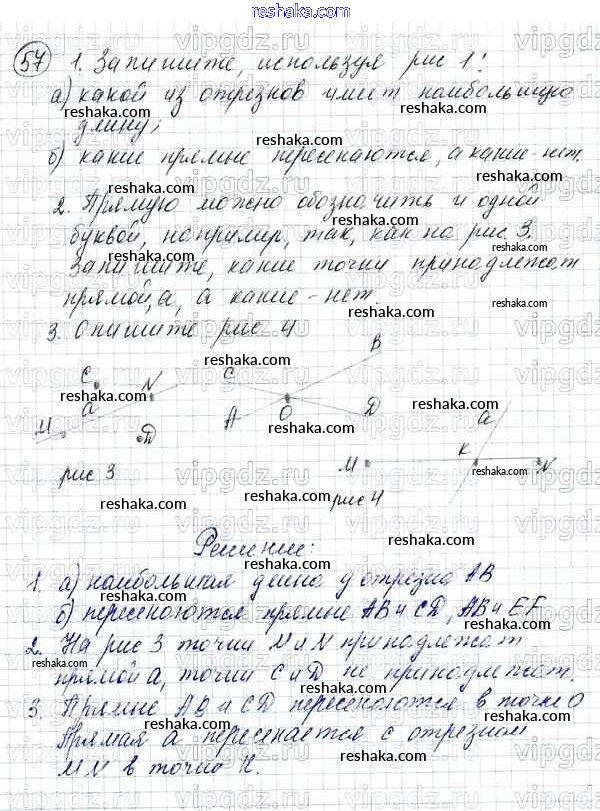 reshaka.com
57 1. Запишите, используя рис 1:
а) какой из отрезков имеет наибольшую
длину;
б) какие прямые пересекаются, а какие - нет.
2. Прямую можно обозначить и одной
буквой, например, так, как на рис 3.
Запишите, какие точки принадлежат
прямой а, а какие - нет.
3. Опишите рис 4
C N a M D
рис 3
C B A O D
a K M N
рис 4
Решение:
1. а) наибольшая длина у отрезка AB
б) пересекаются прямые AB и CD, AB и EF
2. На рис 3 точки M и N принадлежат
прямой а, точки C и D не принадлежат.
3. Прямые AB и CD пересекаются в точке O
Прямая а пересекается с отрезком
MN в точке K.